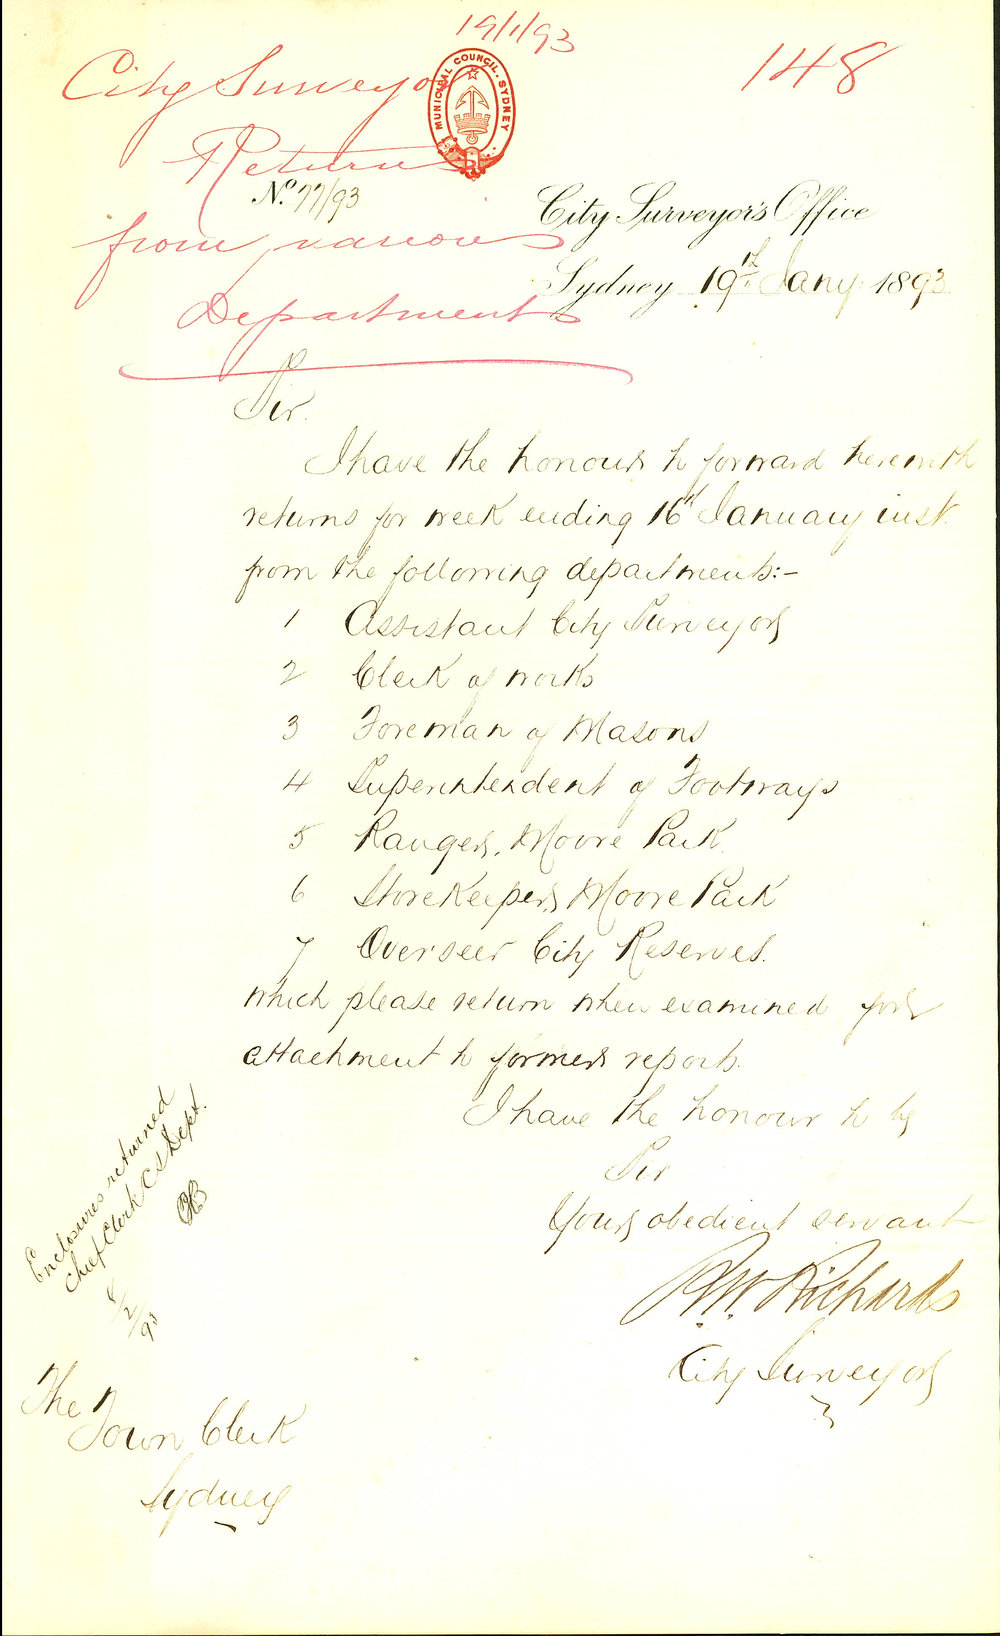 19/1/93
148
City Surveyor
Returns
from various
Departments
MUNICIPAL COUNCIL. SYDNEY
No. 77/93
City Surveyor's Office
Sydney 19th Jany 1893
Sir.
I have the honour to forward herewith
returns for week ending 16th January inst.
from the following departments:-
1 Assistant City Surveyor
2 Clerk of works
3 Foreman of Masons
4 Superintendent of Footways
5 Ranger, Moore Park
6 Storekeeper, Moore Park
7 Overseer City Reserves.
which please return when examined for
attachment to former reports.
I have the honour to be
Sir
Your obedient servant
R.W. Richards
City Surveyor
Enclosures returned
Chief Clerk CS Dept.
8/2/93
The
Town Clerk
Sydney